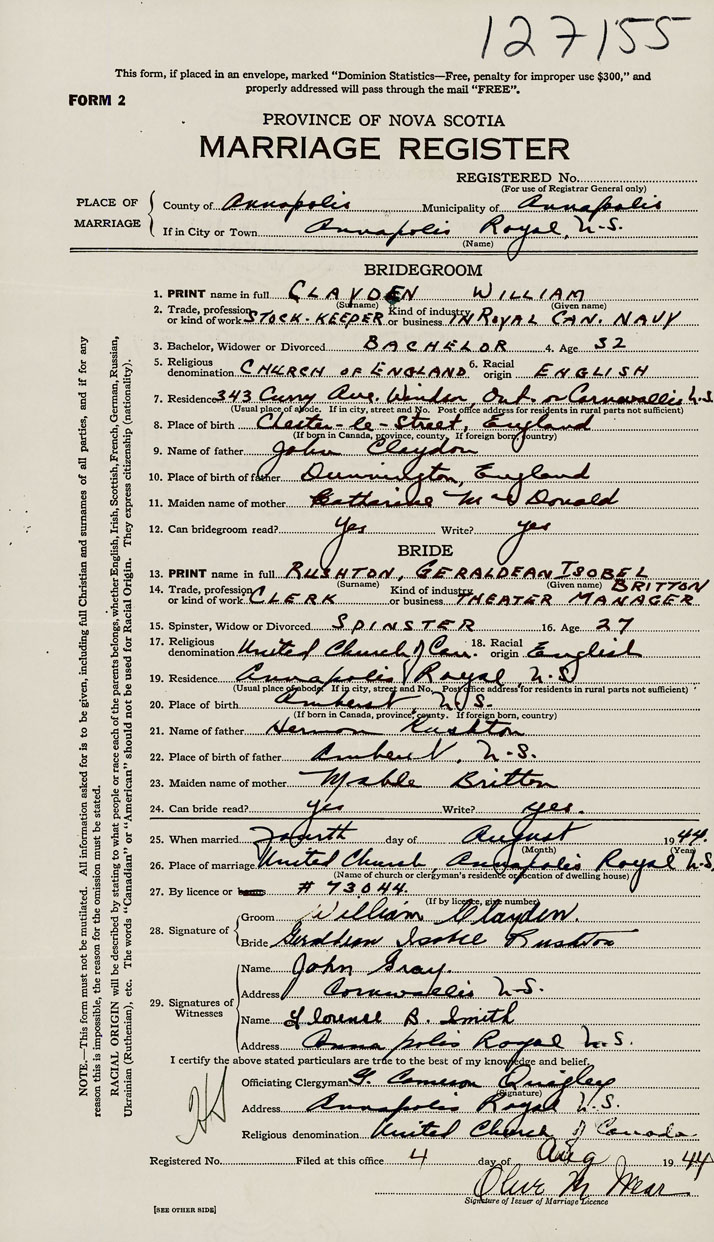 127155
This form, if placed in an envelope, marked "Dominion Statistics—Free, penalty for improper use $300," and
properly addressed will pass through the mail "FREE".
FORM 2
PROVINCE OF NOVA SCOTIA
MARRIAGE REGISTER
REGISTERED No.
(For use of Registrar General only)
PLACE OF MARRIAGE
County of Annapolis Municipality of Annapolis
If in City or Town Annapolis Royal, N.S.
(Name)
BRIDEGROOM
1. PRINT name in full CLAYDEN WILLIAM
(Surname) (Given name)
2. Trade, profession or kind of work STOCK-KEEPER Kind of industry or business IN ROYAL CAN. NAVY
3. Bachelor, Widower or Divorced BACHELOR 4. Age 32
5. Religious denomination CHURCH OF ENGLAND 6. Racial origin ENGLISH
7. Residence 343 Curry Ave. Windsor, Ont. or Cornwallis N.S.
(Usual place of abode. If in city, street and No. Post office address for residents in rural parts not sufficient)
8. Place of birth Chester-le-Street, England
(If born in Canada, province, county. If foreign born, country)
9. Name of father John Claydon
10. Place of birth of father Dunnington, England
11. Maiden name of mother Catharine McDonald
12. Can bridegroom read? yes Write? yes
BRIDE
13. PRINT name in full RUSHTON, GERALDEAN ISOBEL BRITTON
(Surname) (Given name)
14. Trade, profession or kind of work CLERK Kind of industry or business THEATER MANAGER
15. Spinster, Widow or Divorced SPINSTER 16. Age 27
17. Religious denomination United Church of Can. 18. Racial origin English
19. Residence Annapolis Royal, N.S
(Usual place of abode. If in city, street and No. Post office address for residents in rural parts not sufficient)
20. Place of birth Amherst, N.S.
(If born in Canada, province, county. If foreign born, country)
21. Name of father Rushton
22. Place of birth of father Amherst, N.S.
23. Maiden name of mother Mable Britton
24. Can bride read? yes Write? yes.
25. When married Fourth day of August 1944.
(Month) (Year)
26. Place of marriage United Church, Annapolis Royal N.S.
(Name of church or clergyman's residence or location of dwelling house)
27. By licence or # 73044.
(If by licence, give number)
28. Signature of Groom William Clayden.
Bride Geraldean Isobel Rushton
29. Signatures of Witnesses
Name John Gray.
Address Cornwallis N.S.
Name Florence B. Smith
Address Annapolis Royal N.S.
I certify the above stated particulars are true to the best of my knowledge and belief.
Officiating Clergyman G. Cameron Quigley
(Signature)
Address Annapolis Royal N.S.
Religious denomination United Church of Canada
Registered No. Filed at this office 4 day of Aug 1944
Signature of Issuer of Marriage Licence
[SEE OTHER SIDE]
NOTE.—This form must not be mutilated. All information asked for is to be given, including full Christian and surnames of all parties, and if for any
reason this is impossible, the reason for the omission must be stated.
RACIAL ORIGIN will be described by stating to what people or race each of the parents belongs, whether English, Irish, Scottish, French, German, Russian,
Ukrainian (Ruthenian), etc. The words "Canadian" or "American" should not be used for Racial Origin. They express citizenship (nationality).